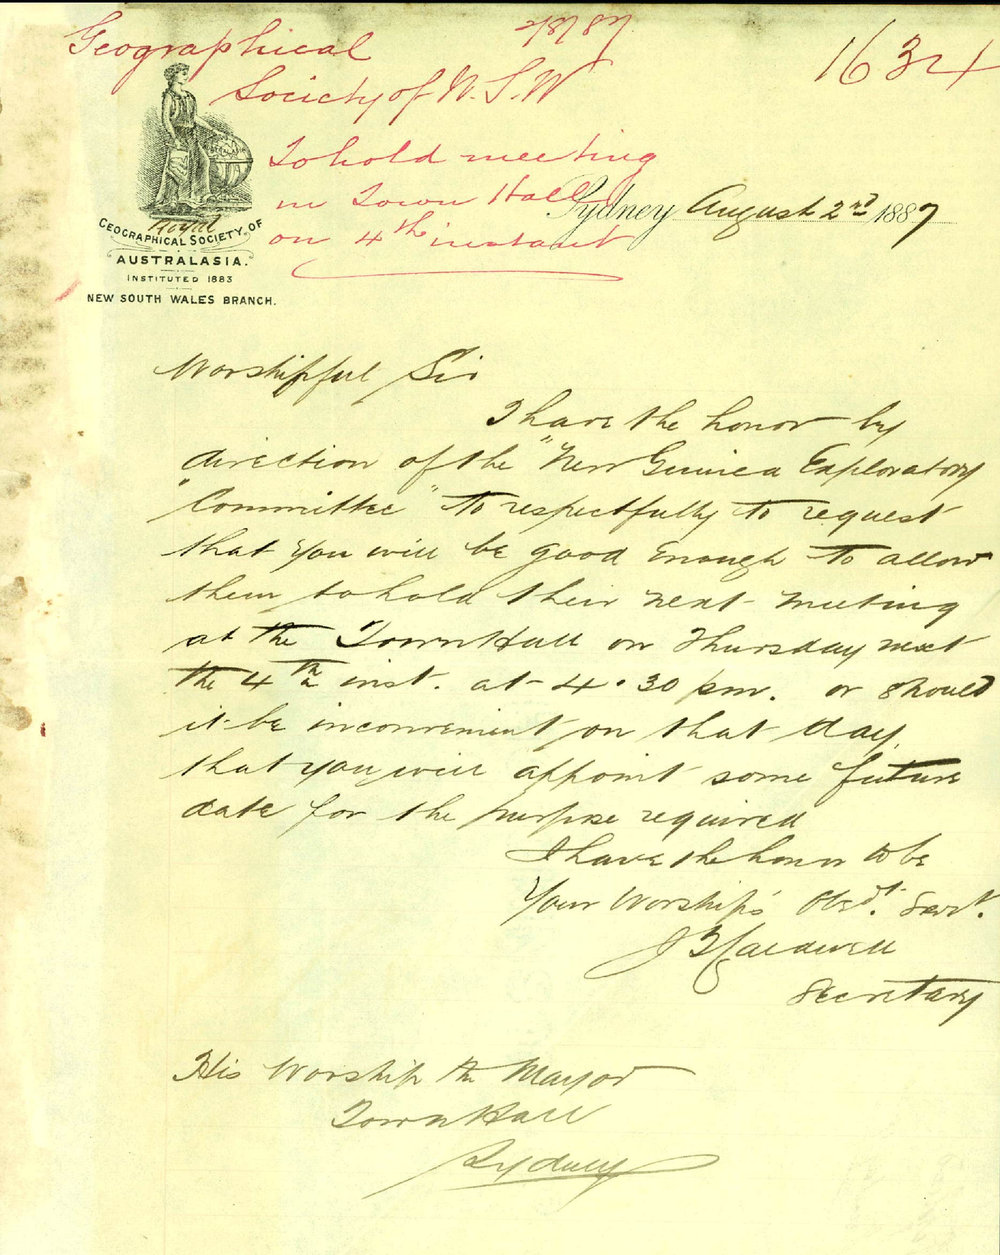 Geographical 2/8/87 1634
Society of N.S.W
To hold meeting
in Town Hall
on 4th instant
Royal
GEOGRAPHICAL SOCIETY OF
AUSTRALASIA.
INSTITUTED 1883
NEW SOUTH WALES BRANCH.
Sydney August 2nd 1887
Worshipful Sir
I have the honor by
direction of the "New Guinea Exploratory
"Committee" to respectfully to request
that you will be good enough to allow
them to hold their next meeting
at the Town Hall on Thursday next
the 4th inst. at 4.30 pm. or should
it be inconvenient on that day
that you will appoint some future
date for the purpose required
I have the honor to be
Your Worship's Obedt. Servt.
Caldwell
Secretary
His Worship the Mayor
Town Hall
Sydney